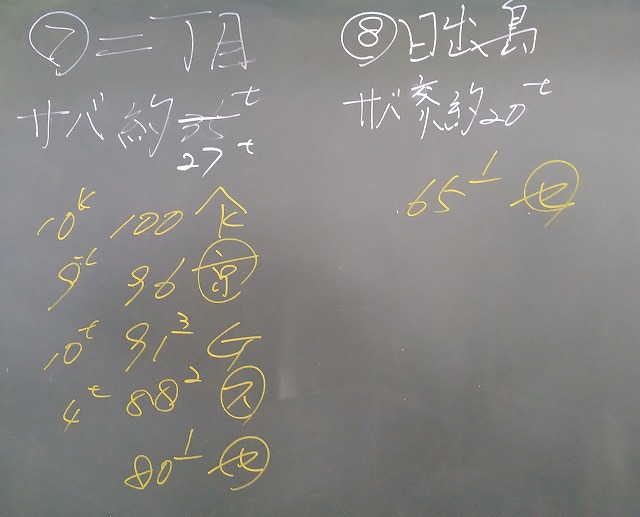 ⑦二丁目
サバ 約35t
27t
10t 100 仒
9t 96 ㊂京
10t 91³ G
4t 88² ㋜
80¹ ㋝
⑧日出島
サバ交 約20t
65¹ ㋝